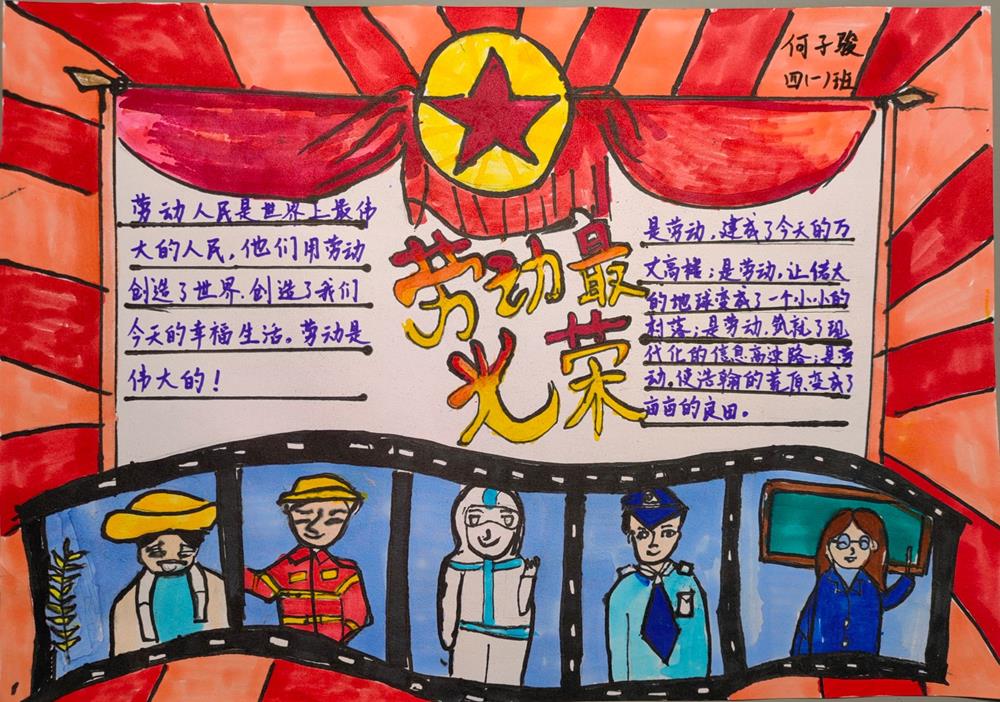 何子骏
四(一)班
劳动最
光荣
劳动人民是世界上最伟
大的人民，他们用劳动
创造了世界，创造了我们
今天的幸福生活。劳动是
伟大的！
是劳动，建成了今天的万
丈高楼；是劳动，让偌大
的地球变成了一个小小的
村落；是劳动，筑就了现
代化的信息高速路；是劳
动，使浩翰的荒原变成了
亩亩的良田。